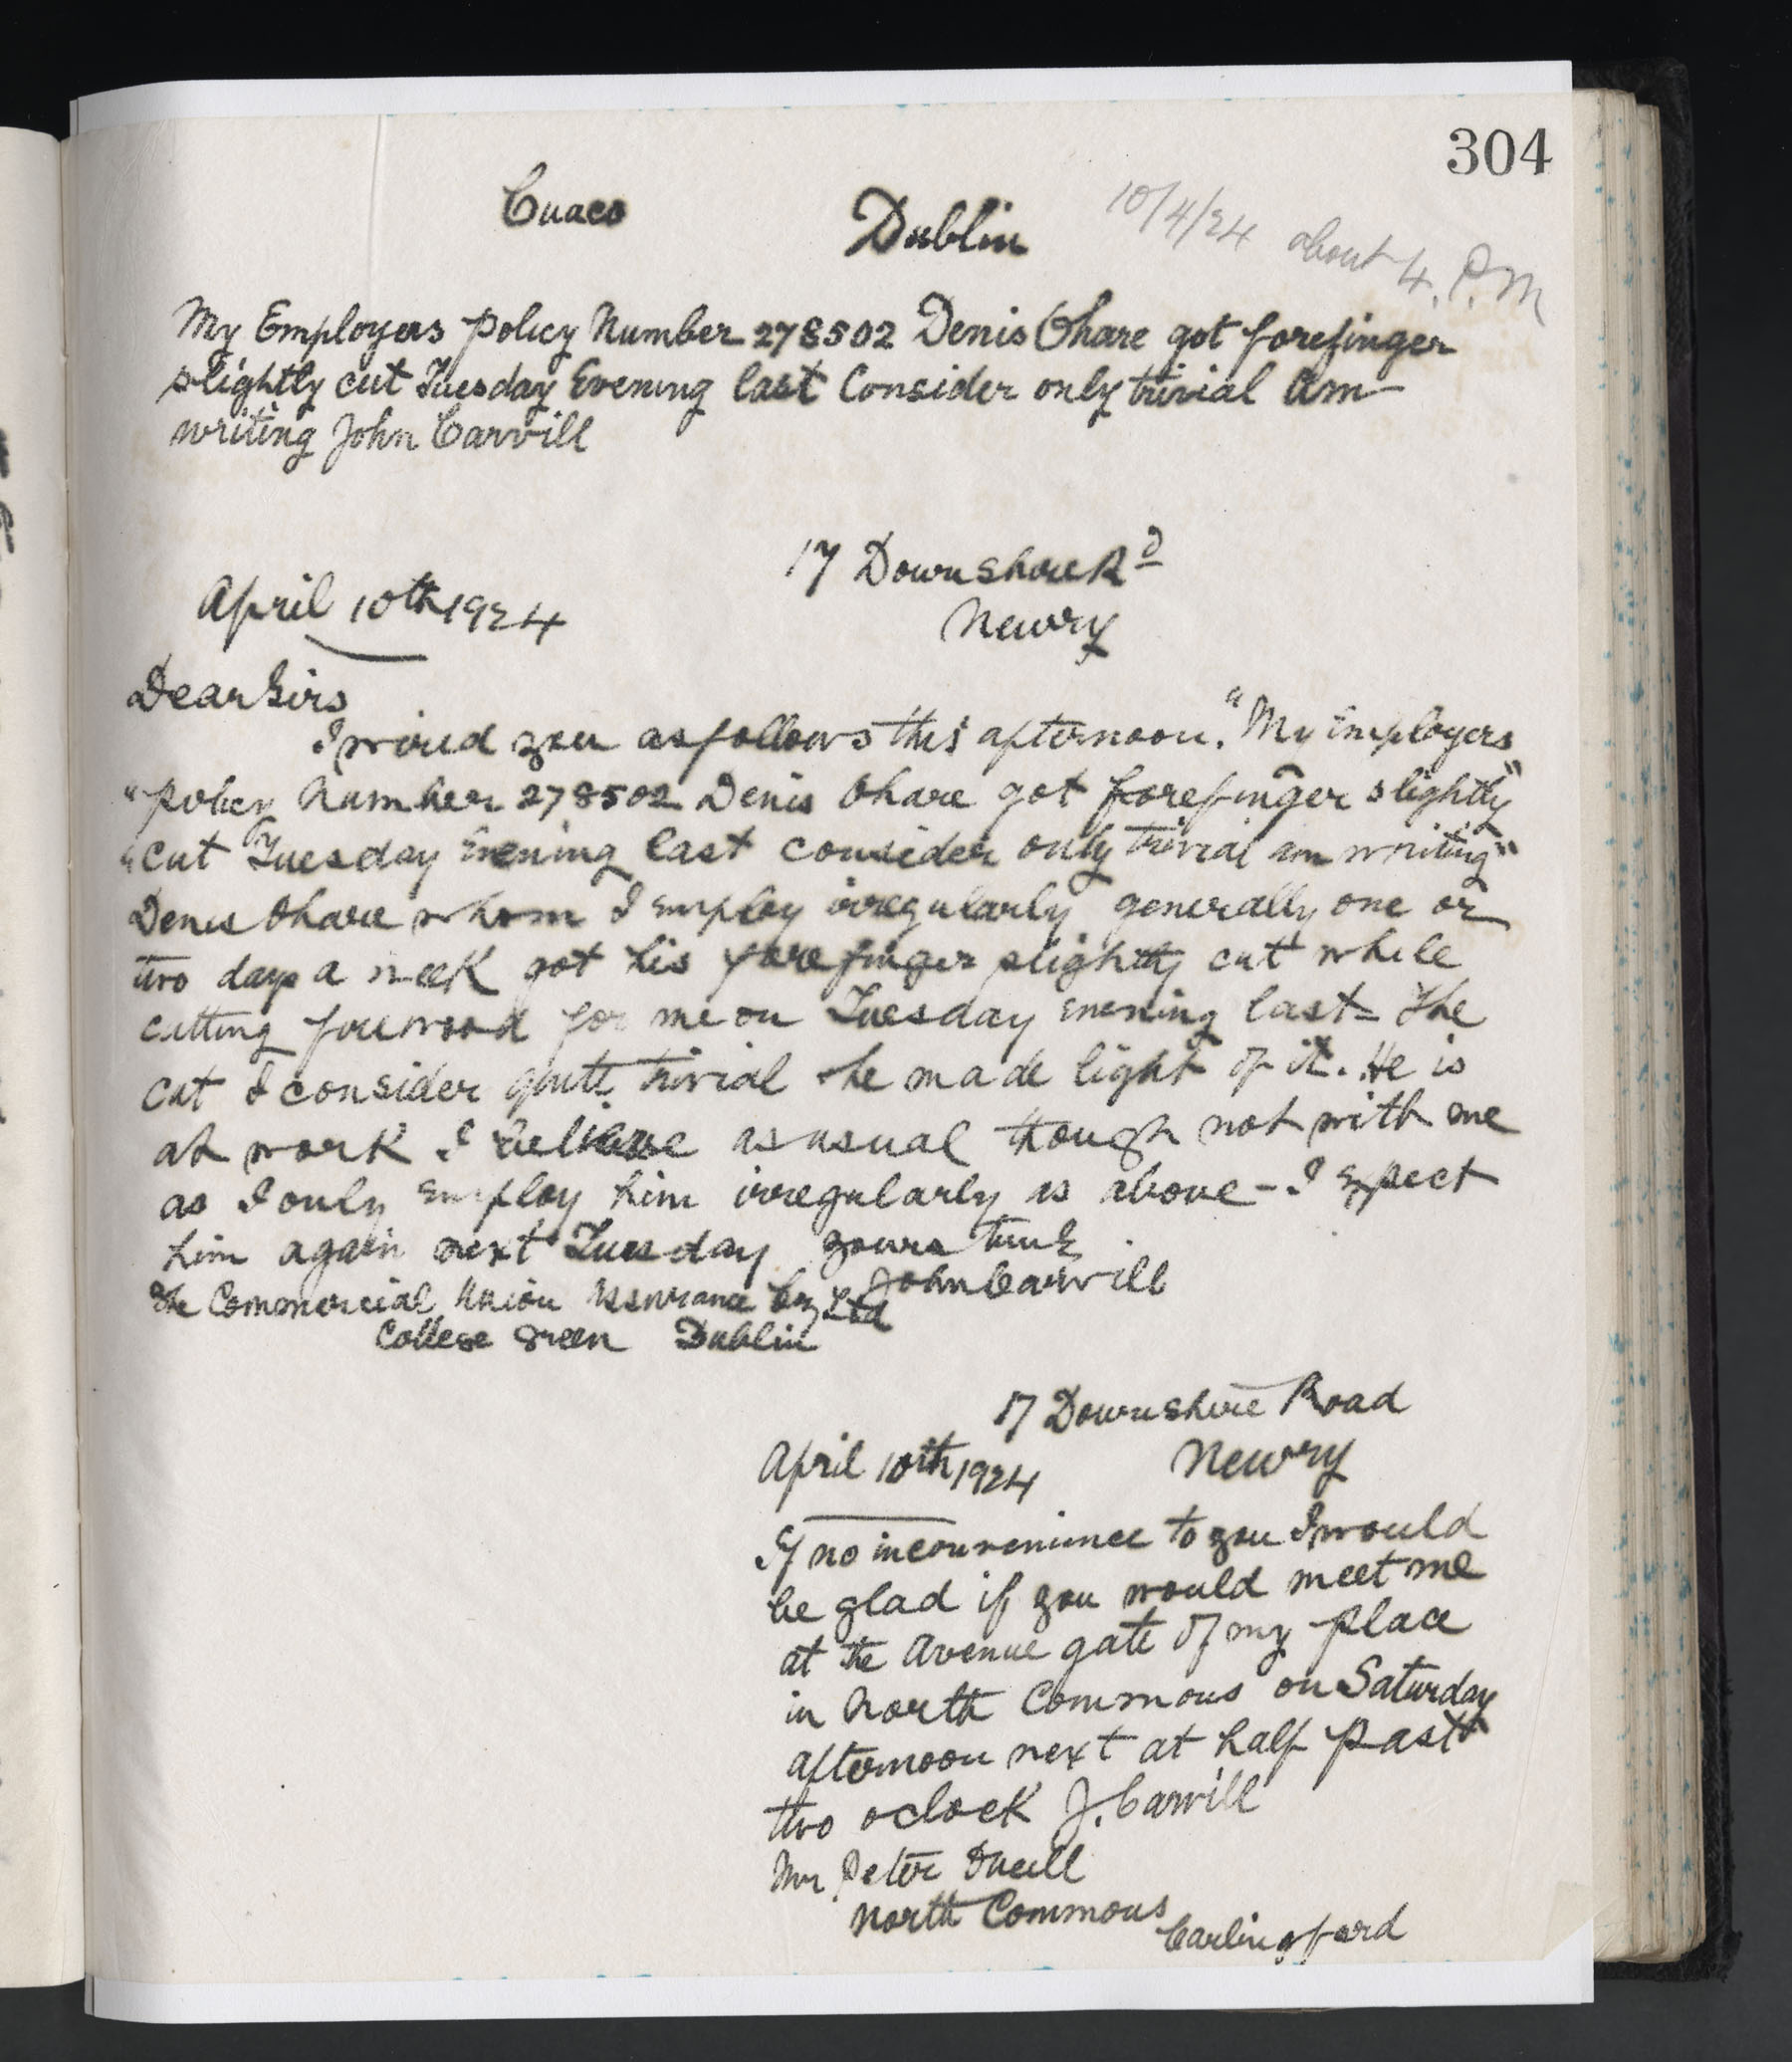 304
Cuaco Dublin 10/4/24 about 4. P.M
My Employers policy Number 278502 Denis Ohare got forefinger
slightly cut Tuesday Evening last Consider only trivial am
writing John Carvill
17 Downshire Rd
Newry
April 10th 1924
Dear Sirs
I wired you as follows this afternoon. "My Employers"
"policy Number 278502 Denis Ohare got forefinger slightly"
"cut Tuesday Evening last consider only trivial am writing"
Denis Ohare whom I employ irregularly generally one or
two days a week got his forefinger slightly cut while
cutting firewood for me on Tuesday evening last = The
cut I consider quite trivial he made light of it. He is
at work I believe as usual though not with me
as I only employ him irregularly as above - I expect
him again next Tuesday yours truly
John Carvill
The Commercial Union Assurance Coy Ltd
College Green Dublin
17 Downshire Road
April 10th 1924 Newry
If no inconvenience to you I would
be glad if you would meet me
at the Avenue gate of my place
in North Commons on Saturday
afternoon next at half past
two oclock J. Carvill
Mr Peter
North Commons
Carlingford